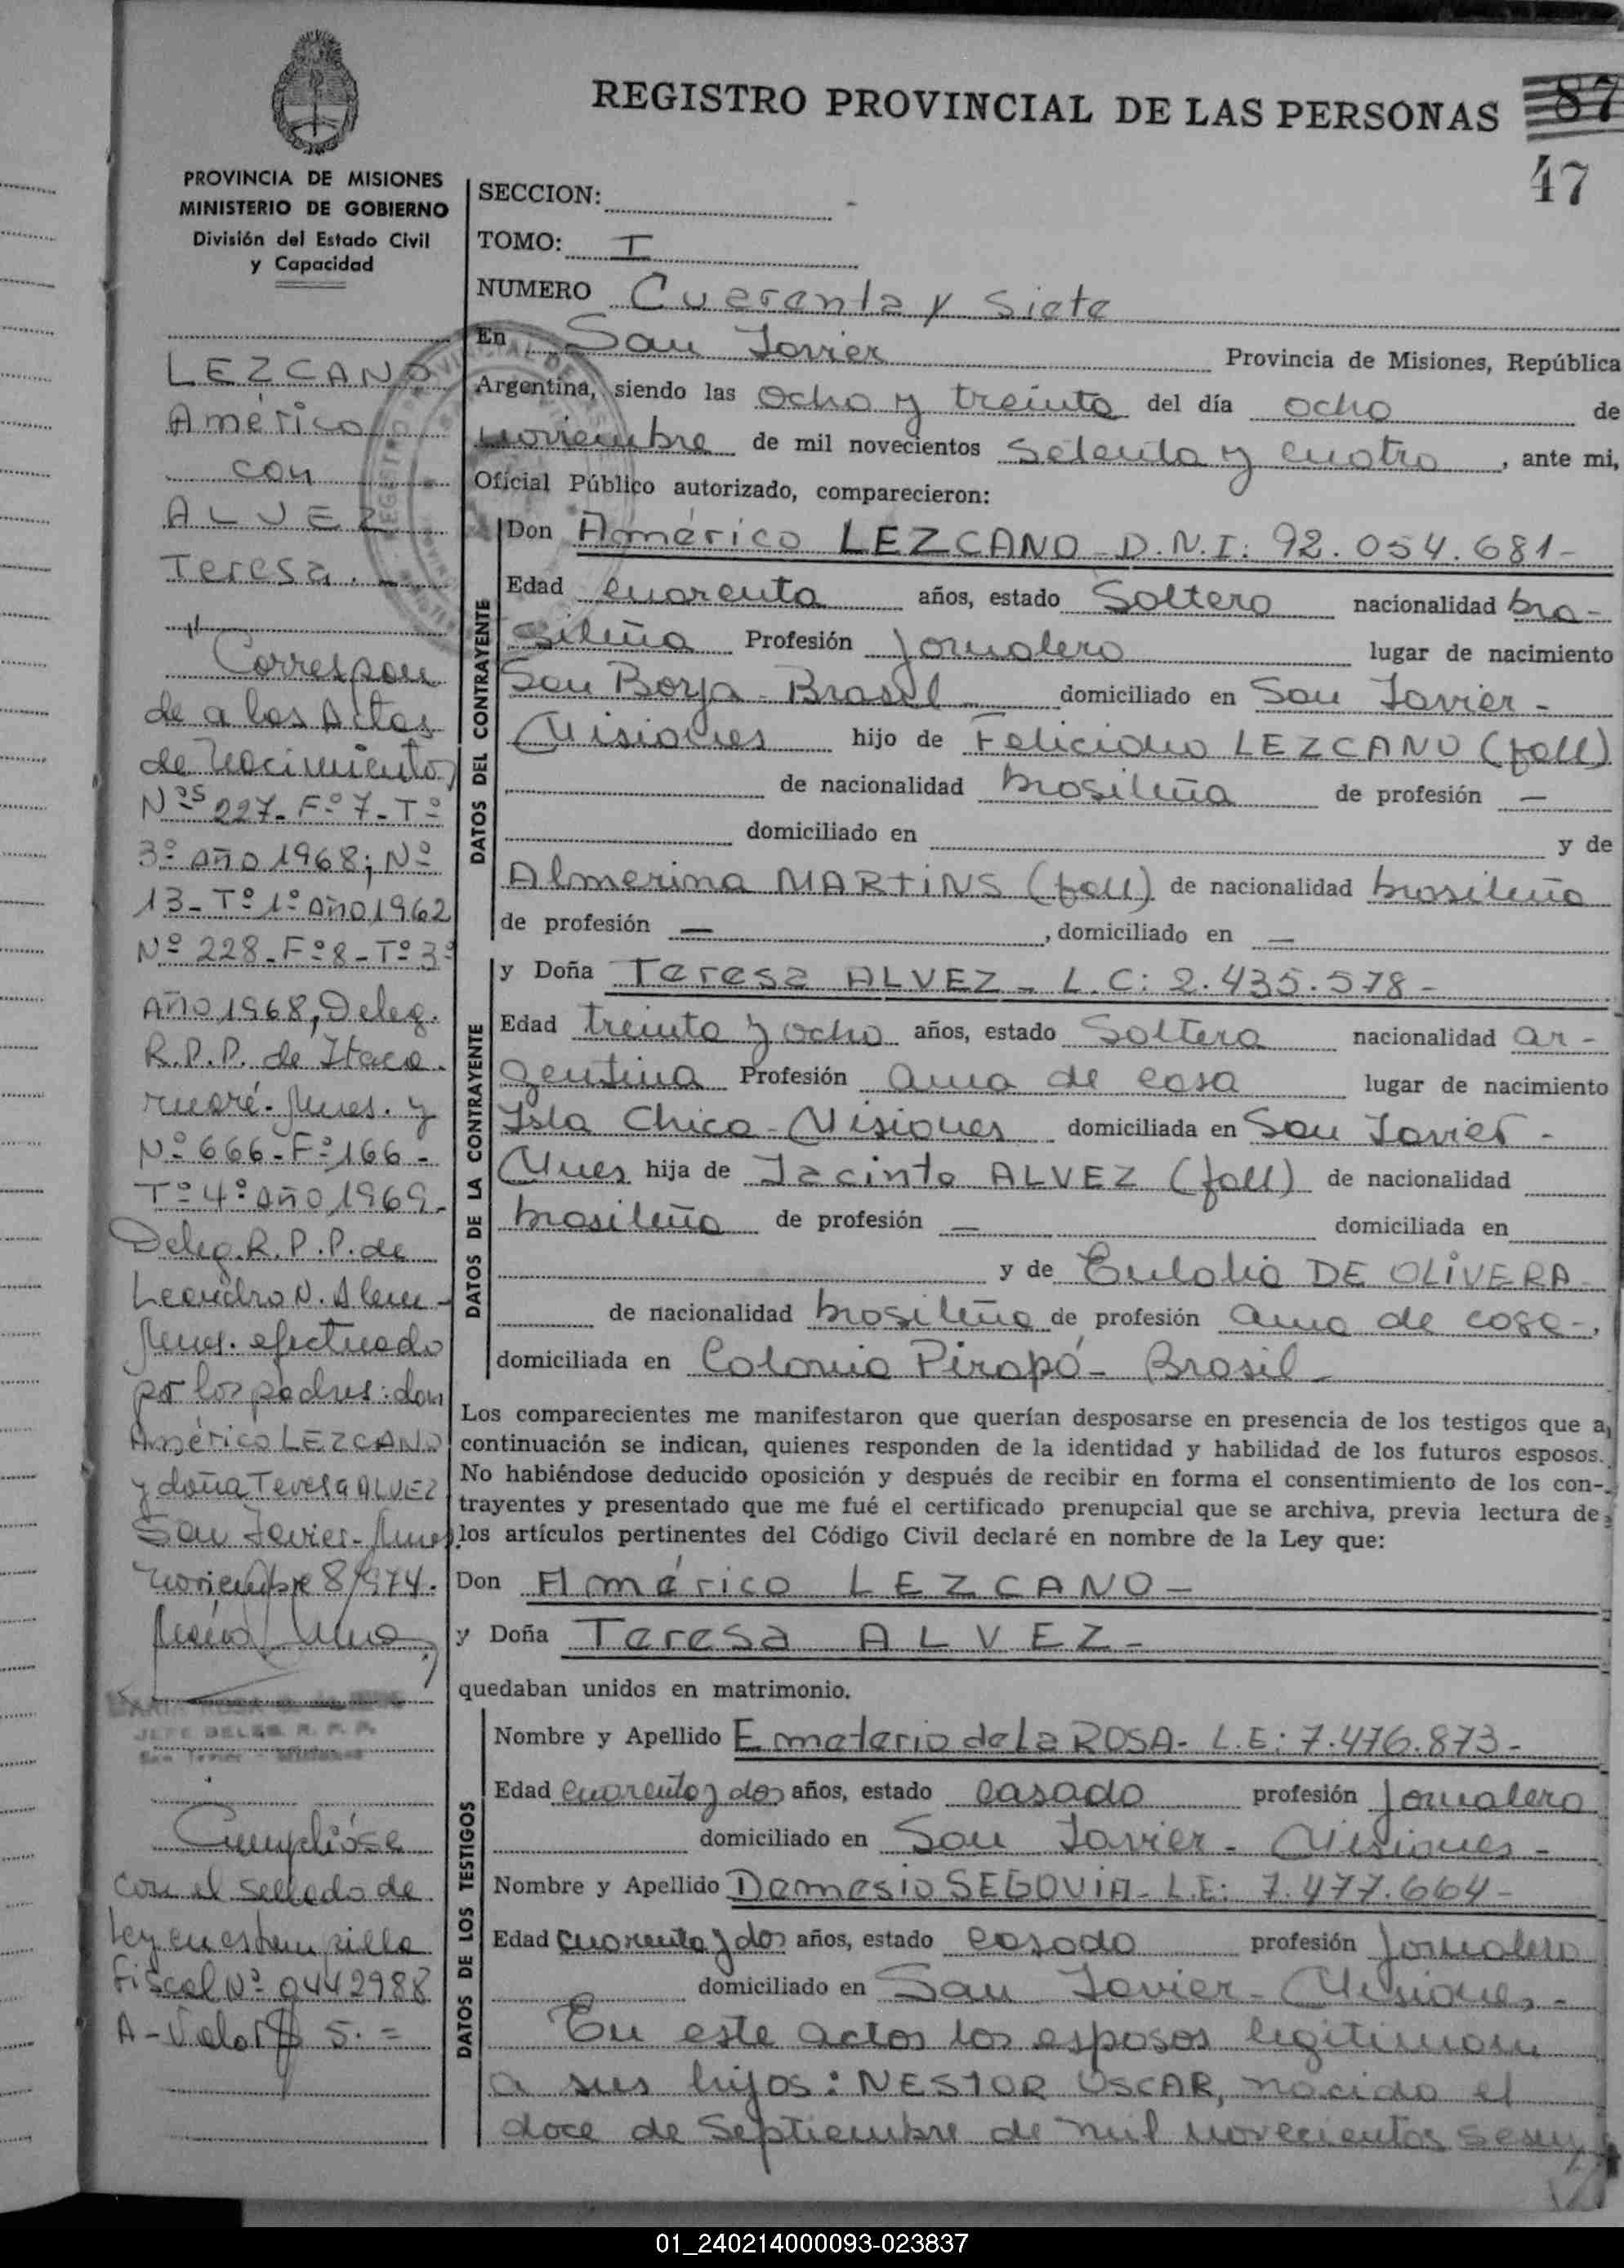 REGISTRO PROVINCIAL DE LAS PERSONAS 87
47
PROVINCIA DE MISIONES
MINISTERIO DE GOBIERNO
División del Estado Civil
y Capacidad
LEZCANO
Américo
con
ALVEZ
Teresa.-
Correspon
de a las Actas
de Nacimientos
Nºs 227-Fº7-Tº
3º año 1968; Nº
13-Tº1º año 1962
Nº 228-Fº8-Tº3º
Año 1968, Deleg.
R.P.P. de Itaca
ruaré-Mnes. y
Nº 666-Fº166-
Tº4º año 1969-
Deleg. R.P.P. de
Leandro N. Alem-
Mnes. efectuado
por los padres: don
Américo LEZCANO
y doña Teresa ALVEZ
San Javier-Mnes
noviembre 8/974.
JEFE DELEG. R. P. P.
San Javier - Misiones
Cumplióse
con el sellado de
Ley en estampilla
fiscal Nº 0442988
A-Valor $ 5.=
SECCION: -
TOMO: I
NUMERO Cuarenta y Siete
En San Javier Provincia de Misiones, República
Argentina, siendo las Ocho y treinta del día ocho de
noviembre de mil novecientos setenta y cuatro, ante mi,
Oficial Público autorizado, comparecieron:
DATOS DEL CONTRAYENTE
Don Américo LEZCANO-D.N.I: 92.054.681-
Edad cuarenta años, estado Soltero nacionalidad bra-
sileña Profesión Jornalero lugar de nacimiento
San Borja-Brasil domiciliado en San Javier-
Misiones hijo de Feliciano LEZCANO (fall)
de nacionalidad brasileña de profesión —
domiciliado en y de
Almerina MARTINS (fall) de nacionalidad brasileña
de profesión —, domiciliado en —
DATOS DE LA CONTRAYENTE
y Doña Teresa ALVEZ- L.C: 2.435.578-
Edad treinta y ocho años, estado Soltera nacionalidad ar-
gentina Profesión ama de casa lugar de nacimiento
Isla Chica-Misiones domiciliada en San Javier-
Mnes hija de Jacinto ALVEZ (fall) de nacionalidad
brasileña de profesión — domiciliada en
y de Eulalia DE OLIVERA
de nacionalidad brasileña de profesión ama de casa-,
domiciliada en Colonia Pirapó-Brasil-
Los comparecientes me manifestaron que querían desposarse en presencia de los testigos que a
continuación se indican, quienes responden de la identidad y habilidad de los futuros esposos.
No habiéndose deducido oposición y después de recibir en forma el consentimiento de los con-
trayentes y presentado que me fué el certificado prenupcial que se archiva, previa lectura de
los artículos pertinentes del Código Civil declaré en nombre de la Ley que:
Don Américo LEZCANO-
y Doña Teresa ALVEZ-
quedaban unidos en matrimonio.
DATOS DE LOS TESTIGOS
Nombre y Apellido Emeterio de La ROSA- L.E: 7.476.873-
Edad cuarenta y dos años, estado casado profesión Jornalero
domiciliado en San Javier-Misiones-
Nombre y Apellido Damesio SEGOVIA-L.E: 7.477.664-
Edad cuarenta y dos años, estado casado profesión Jornalero
domiciliado en San Javier-Misiones-
En este actos los esposos legitiman
a sus hijos: NESTOR OSCAR, nacido el
doce de Septiembre de mil novecientos sesen
01_240214000093-023837